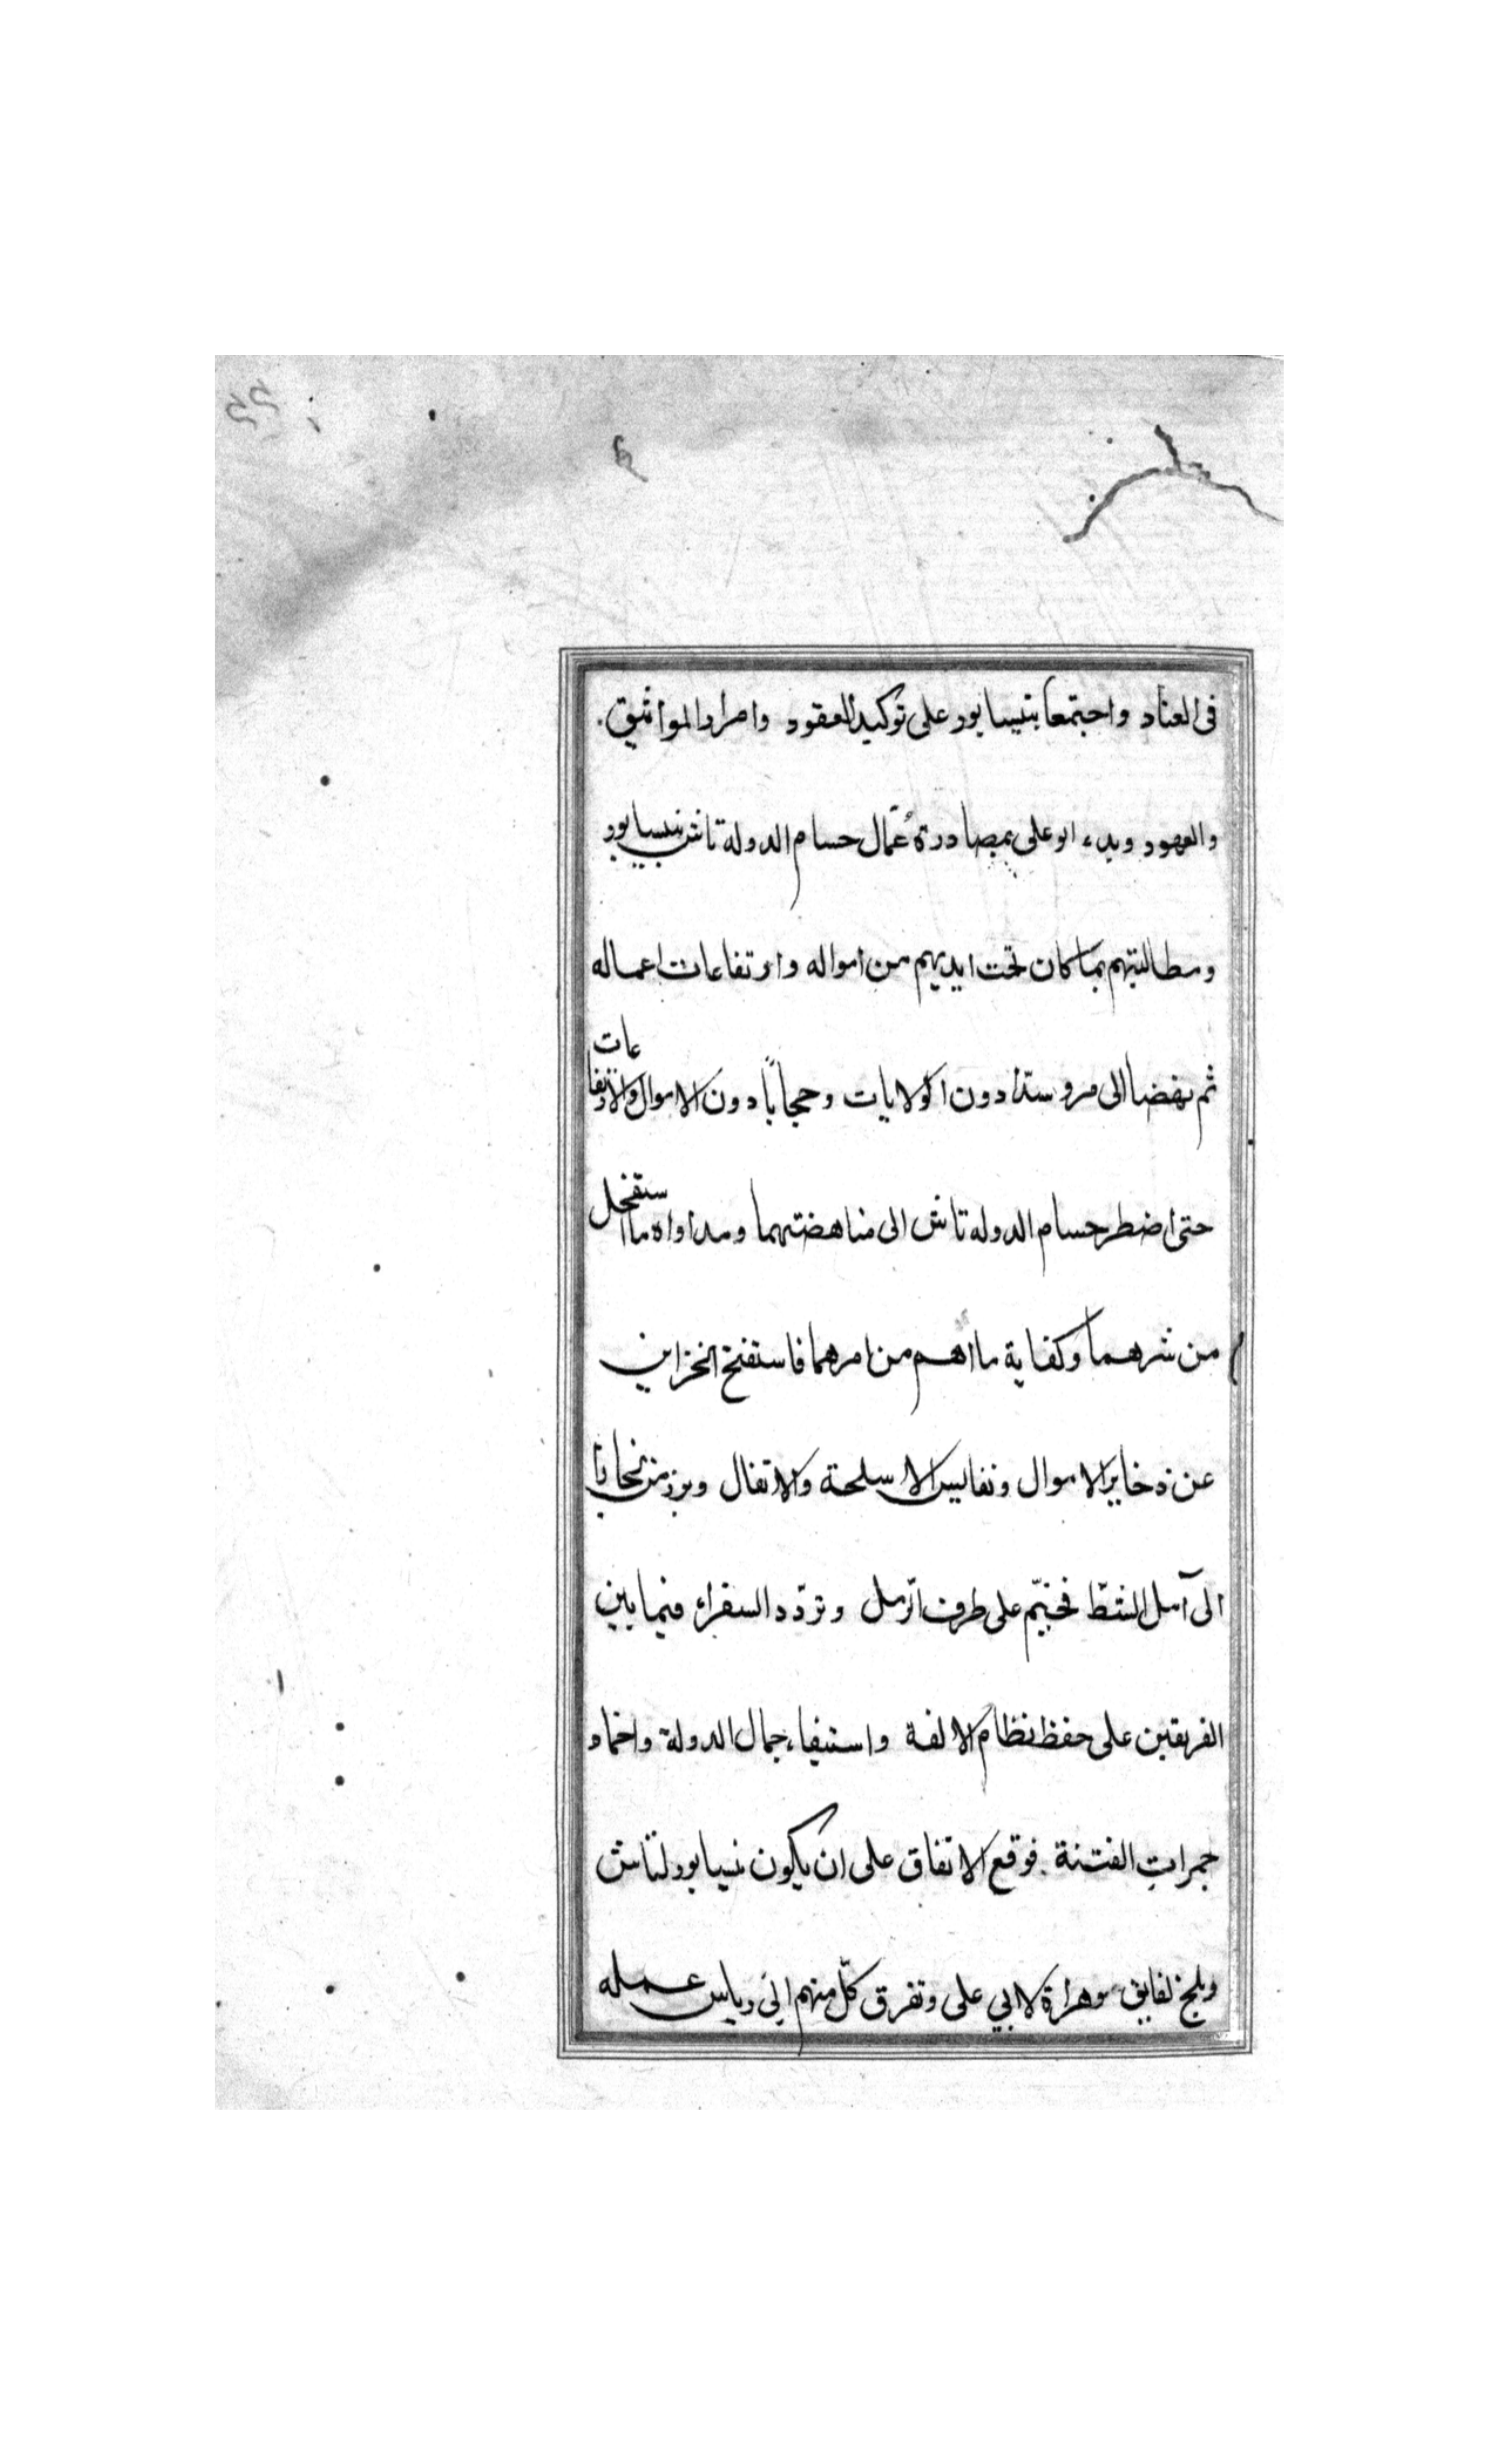 فى العناد واجتمعا بنيسابور على توكيد العقود وامرار المواثيق.
والعهود وبدء ابو على بمصادرة عُمّال حسام الدولة تاش بنيسابور
ومطالبتهم بما كان تحت ايديهم من امواله وارتفاعات اعماله
ثم نهضا الى مرو ستدا دون الولايات وحجاباً دون الاموال والارتفاعات
حتى اضطر حسام الدوله تاش الى مناهضتهما ومداواه ما استفحل
من شرهما وكفاية ما اهم من امرهما فاستفتح الخزاين
عن ذخاير الاموال ونفايس الاسلحة والاثقال وبرز من بخارا
الى آمل الشط فخيّم على طرف الرمل وتردّد السفراء فيما بين
الفريقين على حفظ نظام الالفة واستيفاء جمال الدولة واخماد
جمرات الفتنة. فوقع الاتفاق على ان يكون نيسابور لتاش
وبلخ لفايق وهراة لابي على وتفرق كلّ منهم الى وياس عمله